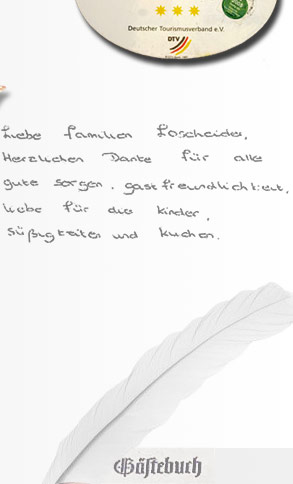 Deutscher Tourismusverband e.V.
DTV
Liebe familien Loscheider,
Herzlichen Danke für alle
gute sorgen, gastfreundlichtkeit,
liebe für die kinder,
süßugkeiten und kuchen.
Gästebuch